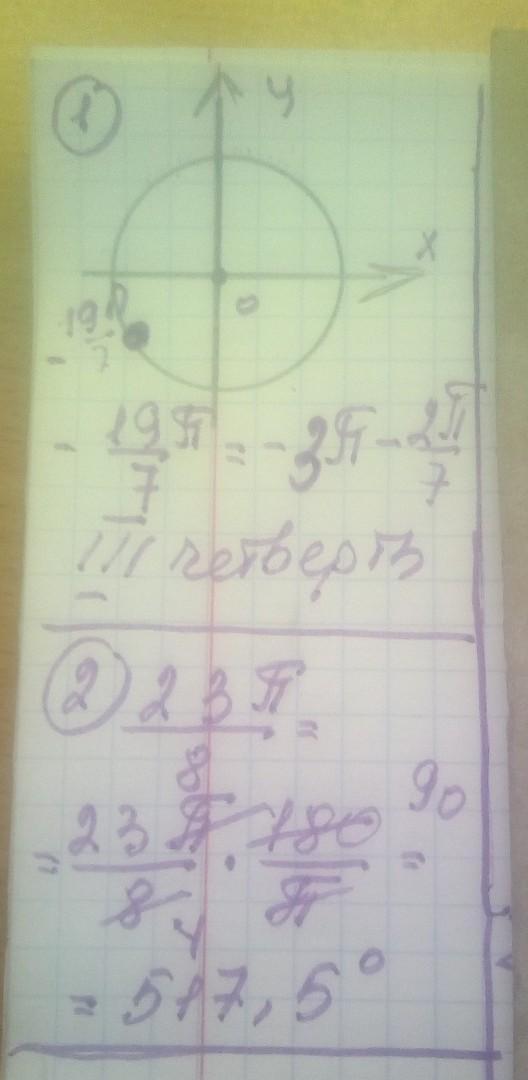 1
y
x
0
- 19π/7
- 19π/7 = -3π - 2π/7
III четверть
2
23π/8 =
= 23π/8 4 · 180/π = 90
= 517,5°